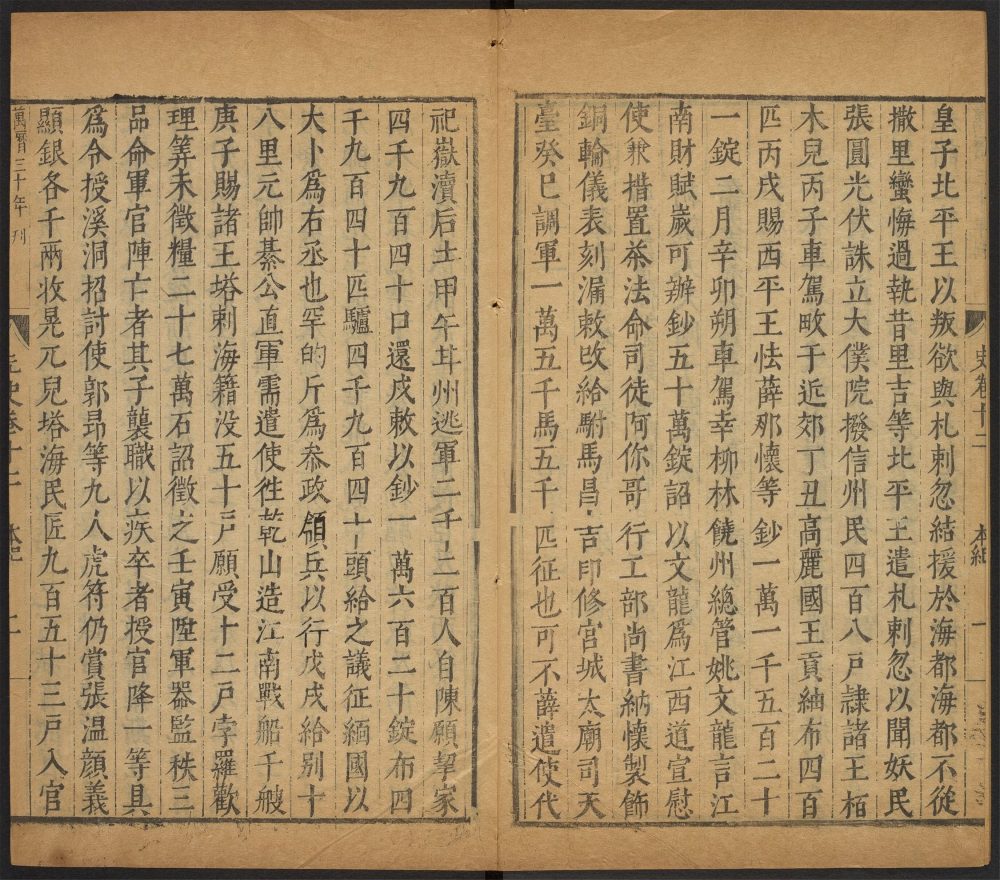 皇子北平王以叛欲與札剌忽結援於海都海都不從
撒里蠻悔過執昔里吉等北平王遣札剌忽以聞妖民
張圓光伏誅立大僕院撥信州民四百八戶隸諸王栢
木兒丙子車駕畋于近郊丁丑高麗國王貢紬布四百
匹丙戌賜西平王怯薛那懷等鈔一萬一千五百二十
一錠二月辛卯朔車駕幸柳林饒州總管姚文龍言江
南財賦歲可辦鈔五十萬錠詔以文龍為江西道宣慰
使兼措置茶法命司徒阿你哥行工部尚書納懷製飾
銅輪儀表刻漏敕改給駙馬昌吉印修宮城太廟司天
臺癸巳調軍一萬五千馬五千匹征也可不薛遣使代
史卷十二
本紀
一
祀嶽瀆后土甲午甘州逃軍二千二百人自陳願挈家
四千九百四十口還戍敕以鈔一萬六百二十錠布四
千九百四十匹驢四千九百四十頭給之議征緬國以
大卜為右丞也罕的斤為叅政領兵以行戊戌給别十
八里元帥綦公直軍需遣使徃乾山造江南戰船千艘
庚子賜諸王塔剌海籍没五十戶願受十二戶孛羅歡
理筭未徵糧二十七萬石詔徵之壬寅陞軍器監秩三
品命軍官陣亡者其子襲職以疾卒者授官降一等具
為令授溪洞招討使郭昂等九人虎符仍賞張温顔義
顯銀各千兩收晃兀兒塔海民匠九百五十三戶入官
萬曆三十年刊
元史卷十二
本紀
二